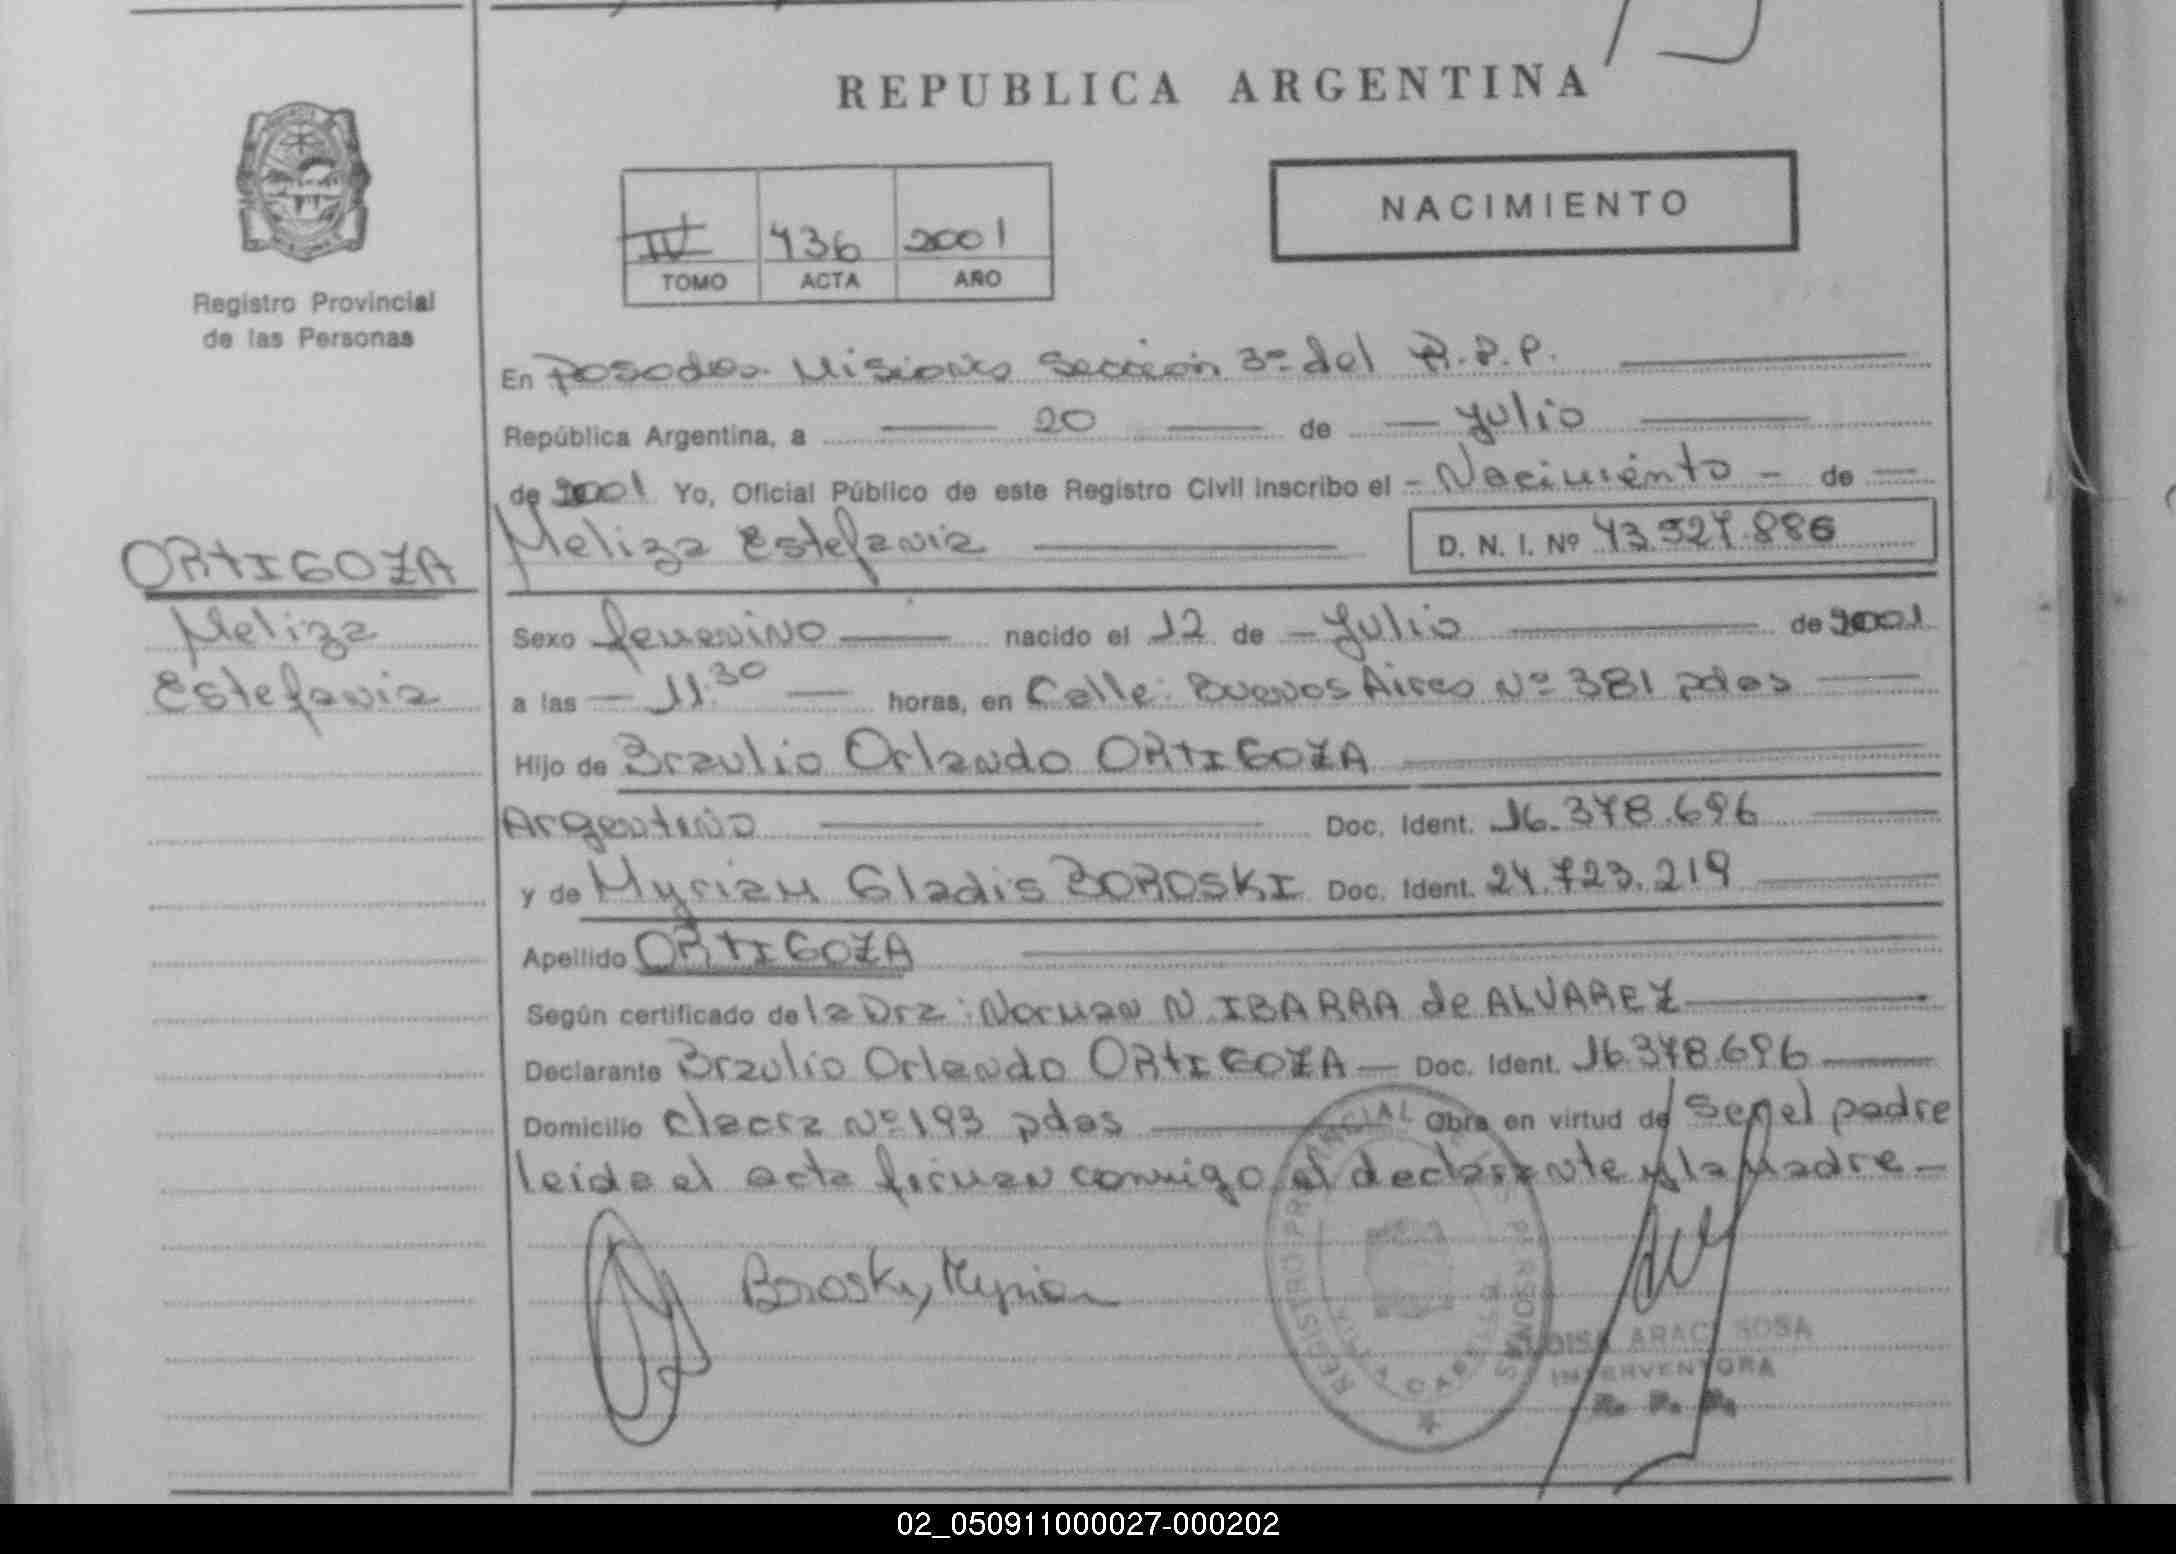 REPUBLICA ARGENTINA
NACIMIENTO
IV 436 2001
TOMO ACTA AÑO
Registro Provincial
de las Personas
En Posadas Misiones Sección 3º del R.P.P.
República Argentina, a 20 de Julio
de 2001 Yo, Oficial Público de este Registro Civil inscribo el - Nacimiento - de
Meliza Estefania D. N. I. Nº 43.527.886
ORTIGOZA
Meliza
Estefania
Sexo femenino nacido el 12 de Julio de 2001
a las 11.30 horas, en Calle: Buenos Aires Nº 381 pdas
Hijo de Braulio Orlando ORTIGOZA
Argentino Doc. Ident. 16.378.696
y de Myriam Gladis BOROSKI Doc. Ident. 24.723.219
Apellido ORTIGOZA
Según certificado de la Dra: Norman N. IBARRA de ALVAREZ
Declarante Braulio Orlando ORTIGOZA Doc. Ident. 16.378.696
Domicilio chacra Nº 193 pdas Obra en virtud de ser el padre
leida el acta firman conmigo el declarante y la madre
Borosky, Myriam
REGISTRO PROVINCIAL PERSONAS
ARAC SOSA
INTERVENTORA
R. P. P.
02_050911000027-000202